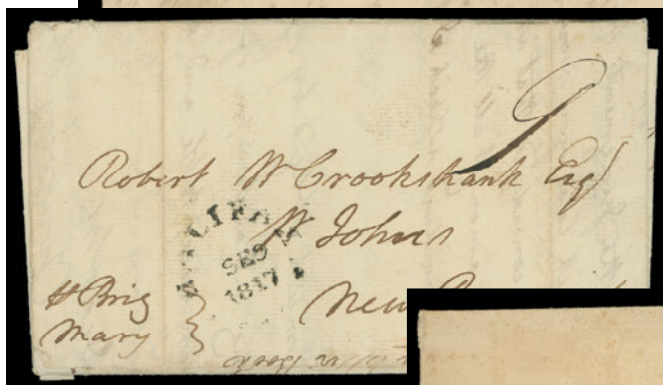 9
Robert W Crookshank Esq
St Johns
New
HALIFAX
SE9
1817
Brig
Mary